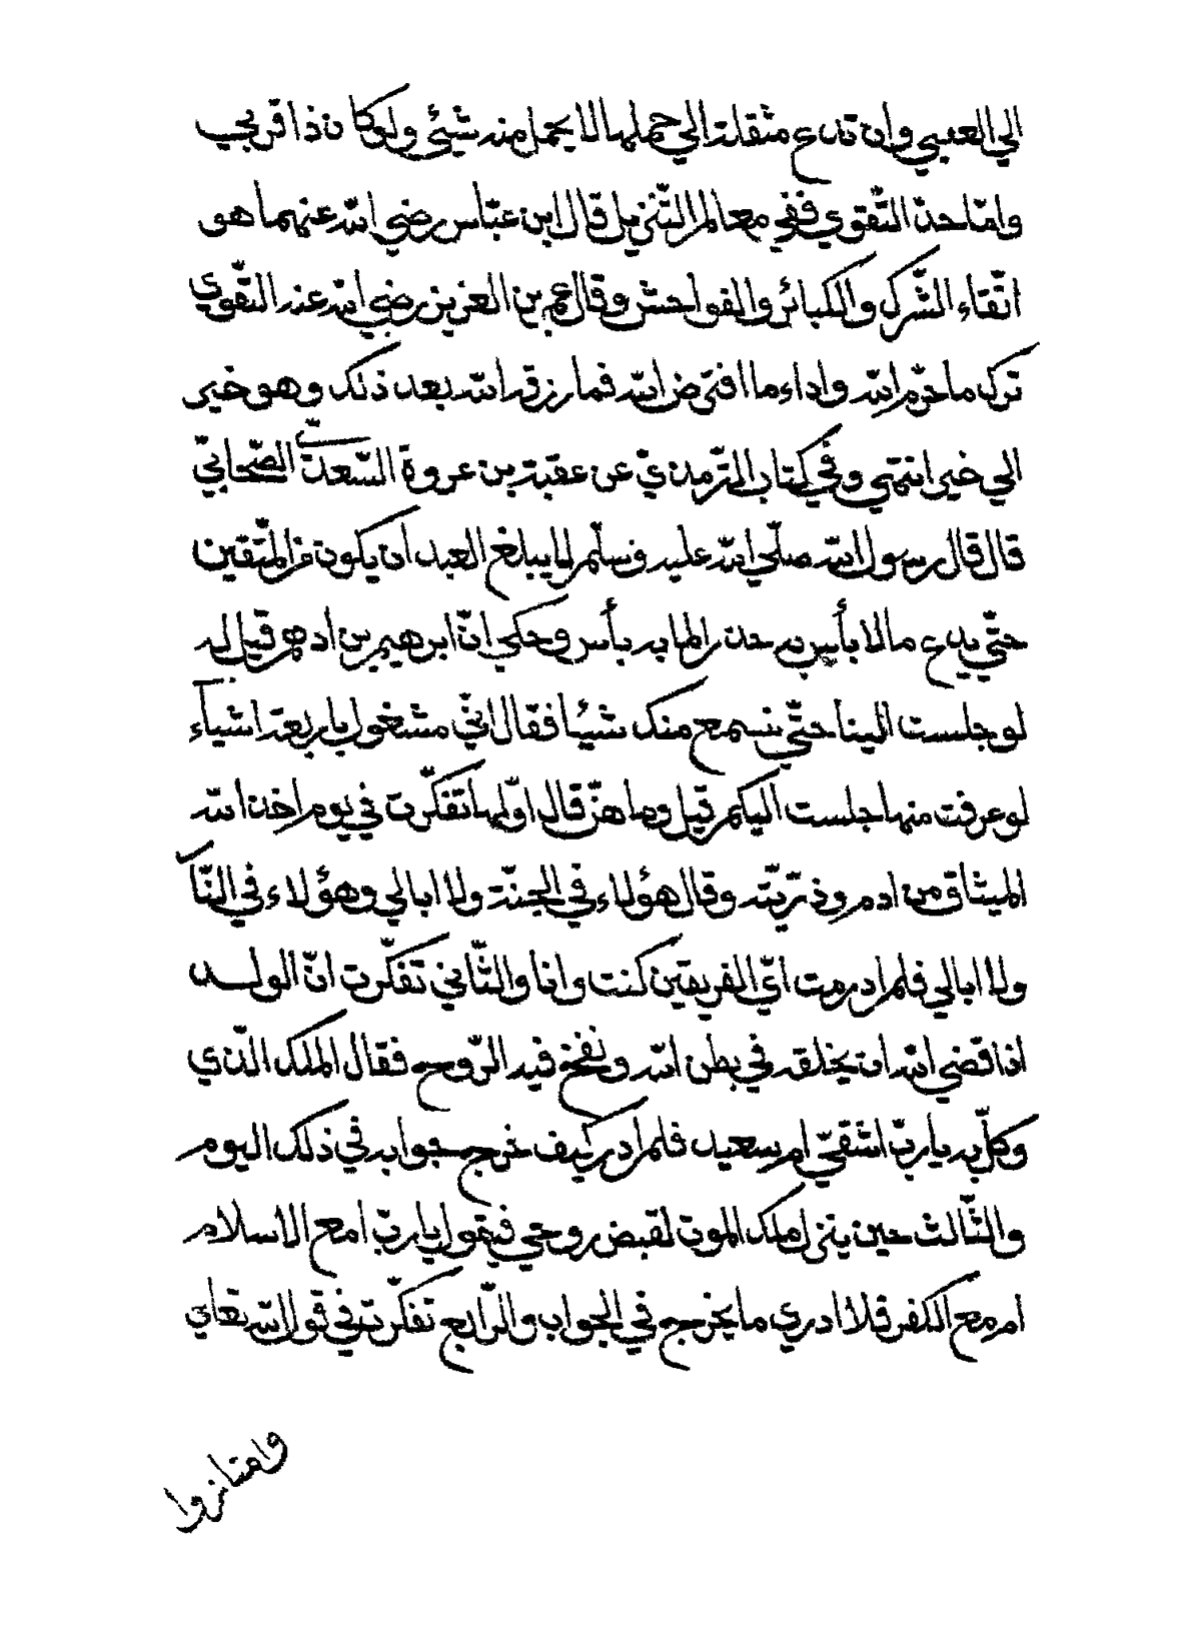 الي العببي وان تدع مثقلة الي حملها لا يحمل منه شيئ ولو كان ذا قربي
وامّا حدّ التّقوي ففي معالم التّنزيل قال ابن عبّاس رضي الله عنهما هو
اتّقاء الشّرك والكبائر والفواحش وقال عمر بن العزيز رضي الله عنه التّقوي
ترك ما حرّم الله واداء ما افترض الله فما رزق الله بعد ذلك وهو خير
الي خير انتهي وفي كتاب التّرمذيّ عن عقبة بن عروة السّعديّ الصّحابيّ
قال قال رسول الله صلّي الله عليه وسلّم لا يبلغ العبد ان يكون من المتّقين
حتّي يدع ما لا بأس به حذرا لما به بأس وحكي انّ ابرهيم بن ادهم قيل له
لو جلست الينا حتّي نسمع منك شيئا فقال انّي مشغول باربعة اشياء
لو عرفت منها جلست اليكم قيل وما هنّ قال اوّلها تفكّرت في يوم اخذ الله
الميثاق من ادم وذرّيّته وقال هؤلاء في الجنّة ولا ابالي وهؤلاء في النّا
ولا ابالي فلم ادر مت ايّ الفريقين كنت وانا والثّاني تفكّرت انّ الولد
اذا قضي الله ان يخلقه في بطن امّه ونفخ فيه الرّوح فقال الملك الّذي
وكلّ به يا ربّ اشقيّ ام سعيد فلم ادر كيف خرج جوابه في ذلك اليوم
والثّالث حين ينزل ملك الموت لقبض روحي فيقول يا ربّ امع الاسلام
ام مع الكفر فلا ادري ما يخرج في الجواب والرّابع تفكّرت في قول الله تعالي
وامتازوا